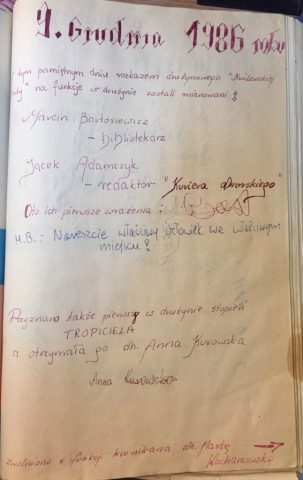 9. Grudnia 1986 roku
tym pamiętnym dniu rozkazem drużynowego
na funkcje w drużynie zostali mianowani:
Marcin Bartosiewicz
- bibliotekarz
Jacek Adamczyk
- redaktor "Kuriera dworskiego"
Oto ich pierwsze wrażenia:
M.B.: Nareszcie właściwy człowiek we właściwym
miejscu!
Przyznano także pierwszy w drużynie stopień
TROPICIELA
a otrzymała go dh. Anna Kurowska
Anna Kurowska
zwolniono z funkcji kronikarza dh. Martę
Kochanowską